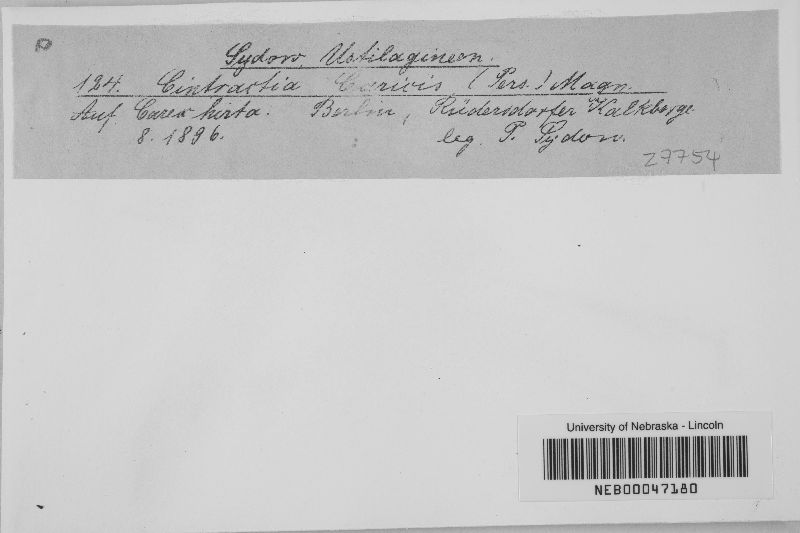 P
Sydow, Ustilagineen.
124. Cintractia Caricis (Pers.) Magn.
Auf Carex hirta. Berlin, Rüdersdorfer Kalkberge
8. 1896. leg. P. Sydow.
27754
University of Nebraska - Lincoln
NEB00047180